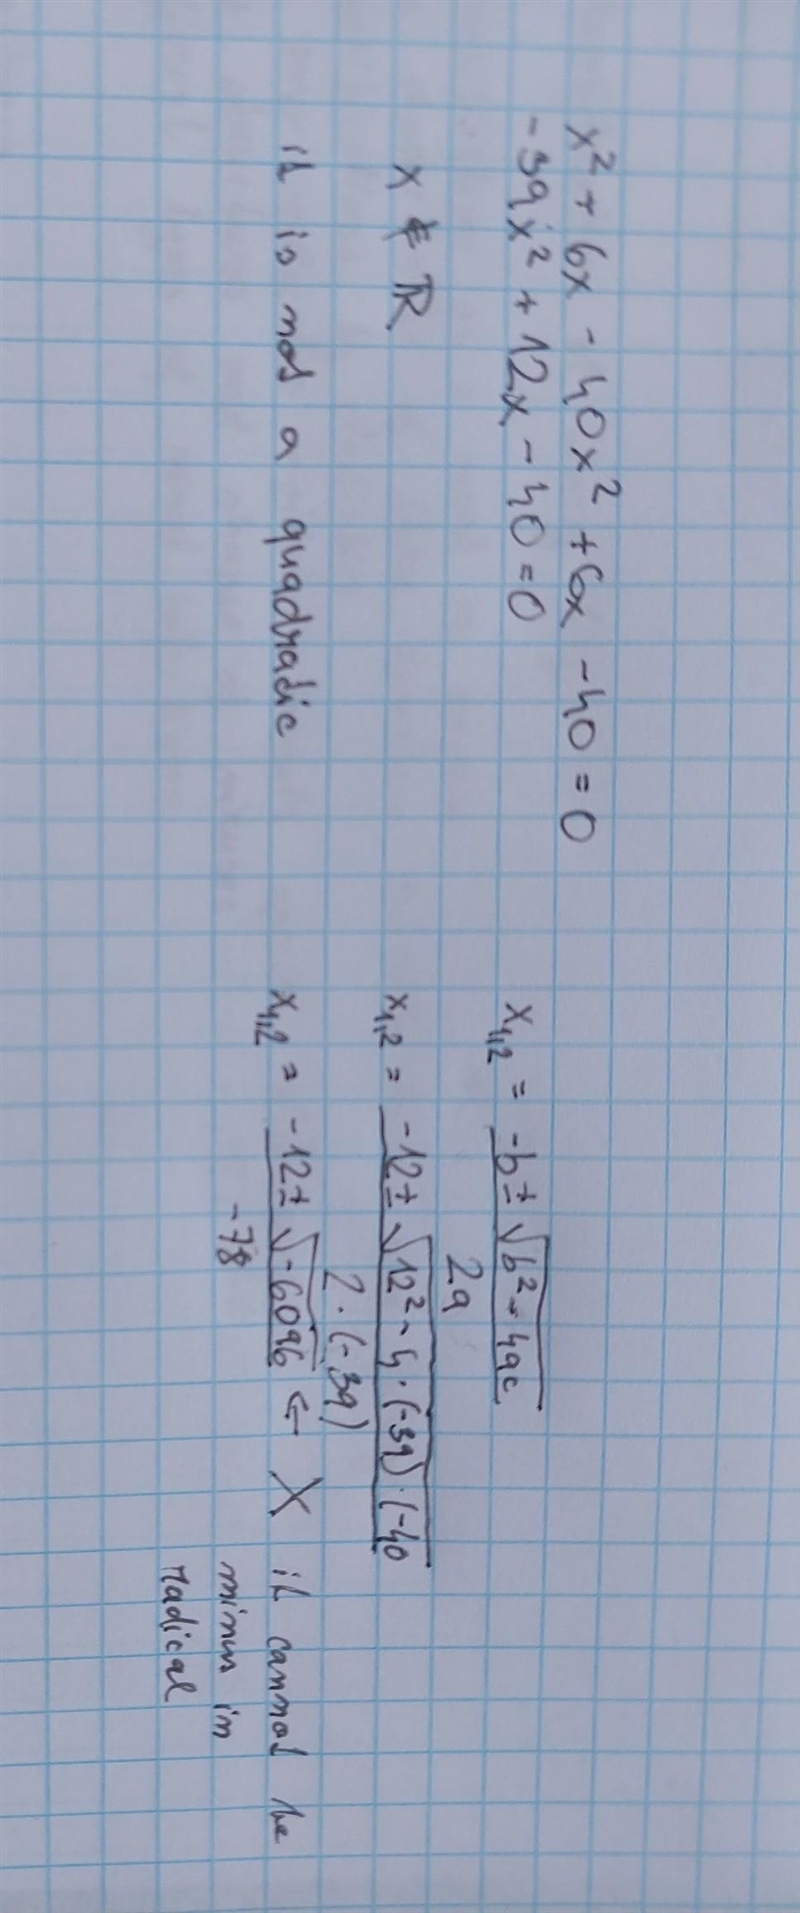 x² + 6x - 40x² + 6x - 40 = 0
-39x² + 12x - 40 = 0
x ∉ ℝ
it is not a quadradic
x₁,₂ = (-b ± √(b² - 4ac)) / 2a
x₁,₂ = (-12 ± √(12² - 4·(-39)·(-40)) / 2·(-39)
x₁,₂ = (-12 ± √(-6096)) / -78 ← X it cannot be
minus in
radical